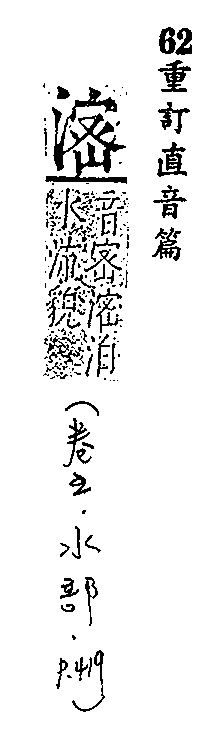 62重訂直音篇
滵
音密滵泊
水流貌
(卷五．水部．P.419)